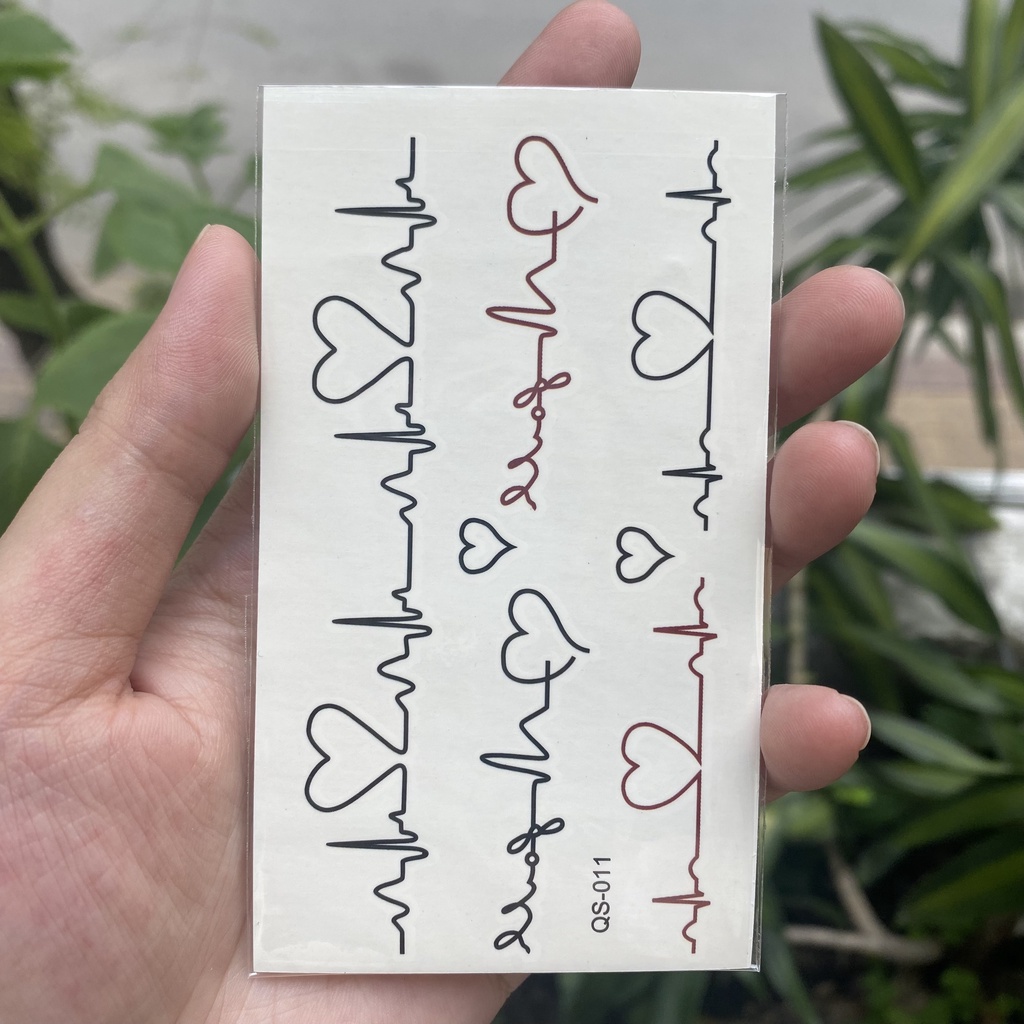 love
love
QS-011